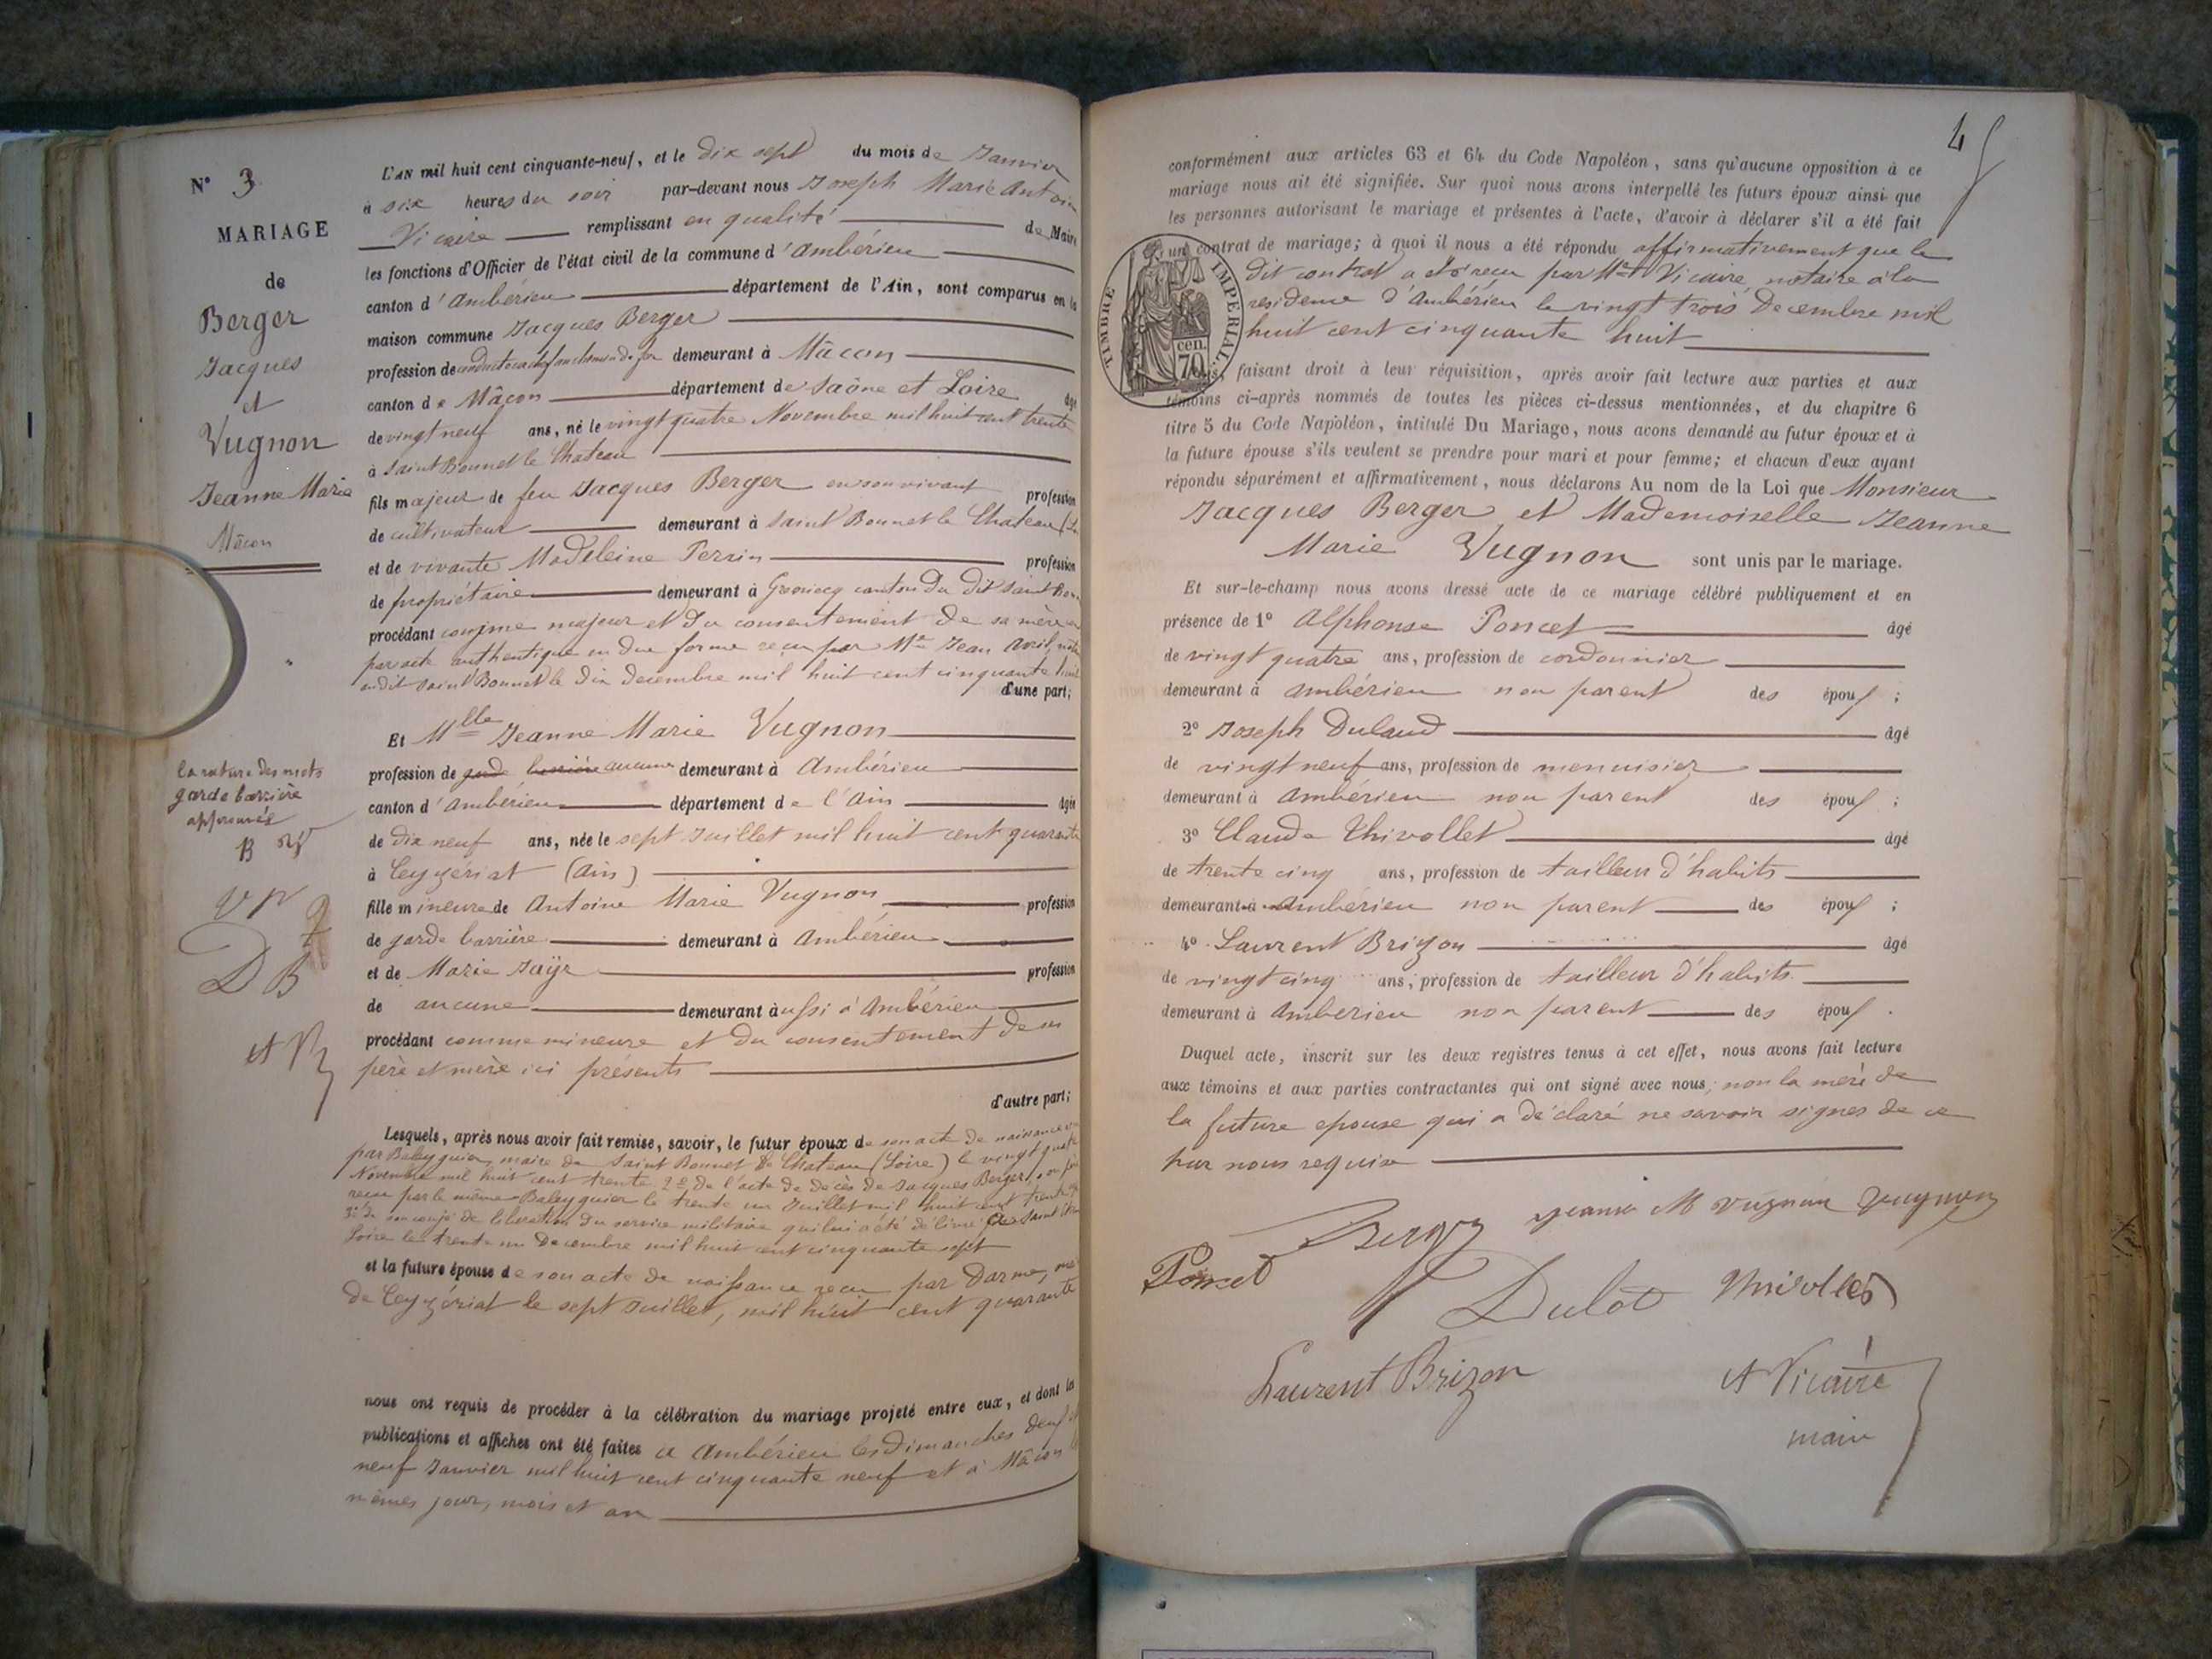 N° 3
MARIAGE
de
Berger
Jacques
et
Vugnon
Jeanne Marie
Mâcon
la rature des mots
garde barrière
approuvée
B
D B
L'AN mil huit cent cinquante-neuf, et le dix sept du mois de Janvier
à six heures du soir par-devant nous Joseph Marie Antoine
Vicaire remplissant en qualité de Maire
les fonctions d'Officier de l'état civil de la commune d'Ambérieu
canton d'Ambérieu département de l'Ain, sont comparus en la
maison commune Jacques Berger
profession de conducteur chef au chemin de fer demeurant à Mâcon
canton de Mâcon département de Saône et Loire âgé
de vingt neuf ans, né le vingt quatre Novembre mil huit cent trente
à Saint Bonnet le Chateau
fils majeur de feu Jacques Berger en son vivant profession
de cultivateur demeurant à Saint Bonnet le Chateau
et de vivante Madeleine Perrin profession
de propriétaire demeurant à canton du dit Saint
procédant comme majeur et du consentement de sa mère
par acte authentique en due forme reçu par Me Jean Avril
audit Saint Bonnet le dix decembre mil huit cent cinquante huit
d'une part;
Et Mlle Jeanne Marie Vugnon
profession de garde barrière aucune demeurant à Ambérieu
canton d'Ambérieu département de l'Ain âgée
de dix neuf ans, née le sept Juillet mil huit cent quarante
à Ceyzériat (Ain)
fille mineure de Antoine Marie Vugnon profession
de garde barrière demeurant à Ambérieu
et de Marie Jayr profession
de aucune demeurant aussi à Ambérieu
procédant comme mineure et du consentement de ses
père et mère ici présents
d'autre part;
Lesquels, après nous avoir fait remise, savoir, le futur époux de son acte de naissance
par Baleyguier, maire de Saint Bonnet le Chateau (Loire) le vingt quatre
Novembre mil huit cent trente 2° de l'acte de decès de Jacques Berger, son père
reçu par le même Baleyguier le trente un Juillet mil huit cent trente
3° de son congé de liberation du service militaire qui lui a été délivré à Saint
Loire le trente un Decembre mil huit cent cinquante sept
et la future épouse de son acte de naissance reçu par Darme,
de Ceyzériat le sept Juillet, mil huit cent quarante
nous ont requis de procéder à la célébration du mariage projeté entre eux, et dont les
publications et affiches ont été faites à Ambérieu les dimanches deux et
neuf Janvier mil huit cent cinquante neuf et à Mâcon
mêmes jour, mois et an
4
conformément aux articles 63 et 64 du Code Napoléon, sans qu'aucune opposition à ce
mariage nous ait été signifiée. Sur quoi nous avons interpellé les futurs époux ainsi que
les personnes autorisant le mariage et présentes à l'acte, d'avoir à déclarer s'il a été fait
un contrat de mariage; à quoi il nous a été répondu affirmativement que le
dit contrat a été reçu par Me Vicaire, notaire à la
residence d'Ambérieu le vingt trois Decembre mil
huit cent cinquante huit
TIMBRE IMPERIAL.
70 cen.
faisant droit à leur réquisition, après avoir fait lecture aux parties et aux
témoins ci-après nommés de toutes les pièces ci-dessus mentionnées, et du chapitre 6
titre 5 du Code Napoléon, intitulé Du Mariage, nous avons demandé au futur époux et à
la future épouse s'ils veulent se prendre pour mari et pour femme; et chacun d'eux ayant
répondu séparément et affirmativement, nous déclarons Au nom de la Loi que Monsieur
Jacques Berger et Mademoiselle Jeanne
Marie Vugnon sont unis par le mariage.
Et sur-le-champ nous avons dressé acte de ce mariage célébré publiquement et en
présence de 1° Alphonse Poncet âgé
de vingt quatre ans, profession de cordonnier
demeurant à Ambérieu non parent des époux;
2° Joseph Dulaud âgé
de vingt neuf ans, profession de menuisier
demeurant à Ambérieu non parent des époux;
3° Claude Thivollet âgé
de trente cinq ans, profession de tailleur d'habits
demeurant à Ambérieu non parent des époux;
4° Laurent Brizon âgé
de vingt cinq ans, profession de tailleur d'habits
demeurant à Ambérieu non parent des époux.
Duquel acte, inscrit sur les deux registres tenus à cet effet, nous avons fait lecture
aux témoins et aux parties contractantes qui ont signé avec nous, non la mère de
la future epouse qui a déclaré ne savoir signer de ce
par nous requise
Berger Jeanne M Vugnon Vugnon
Poncet Thivollet
Laurent Brizon A Vicaire
maire